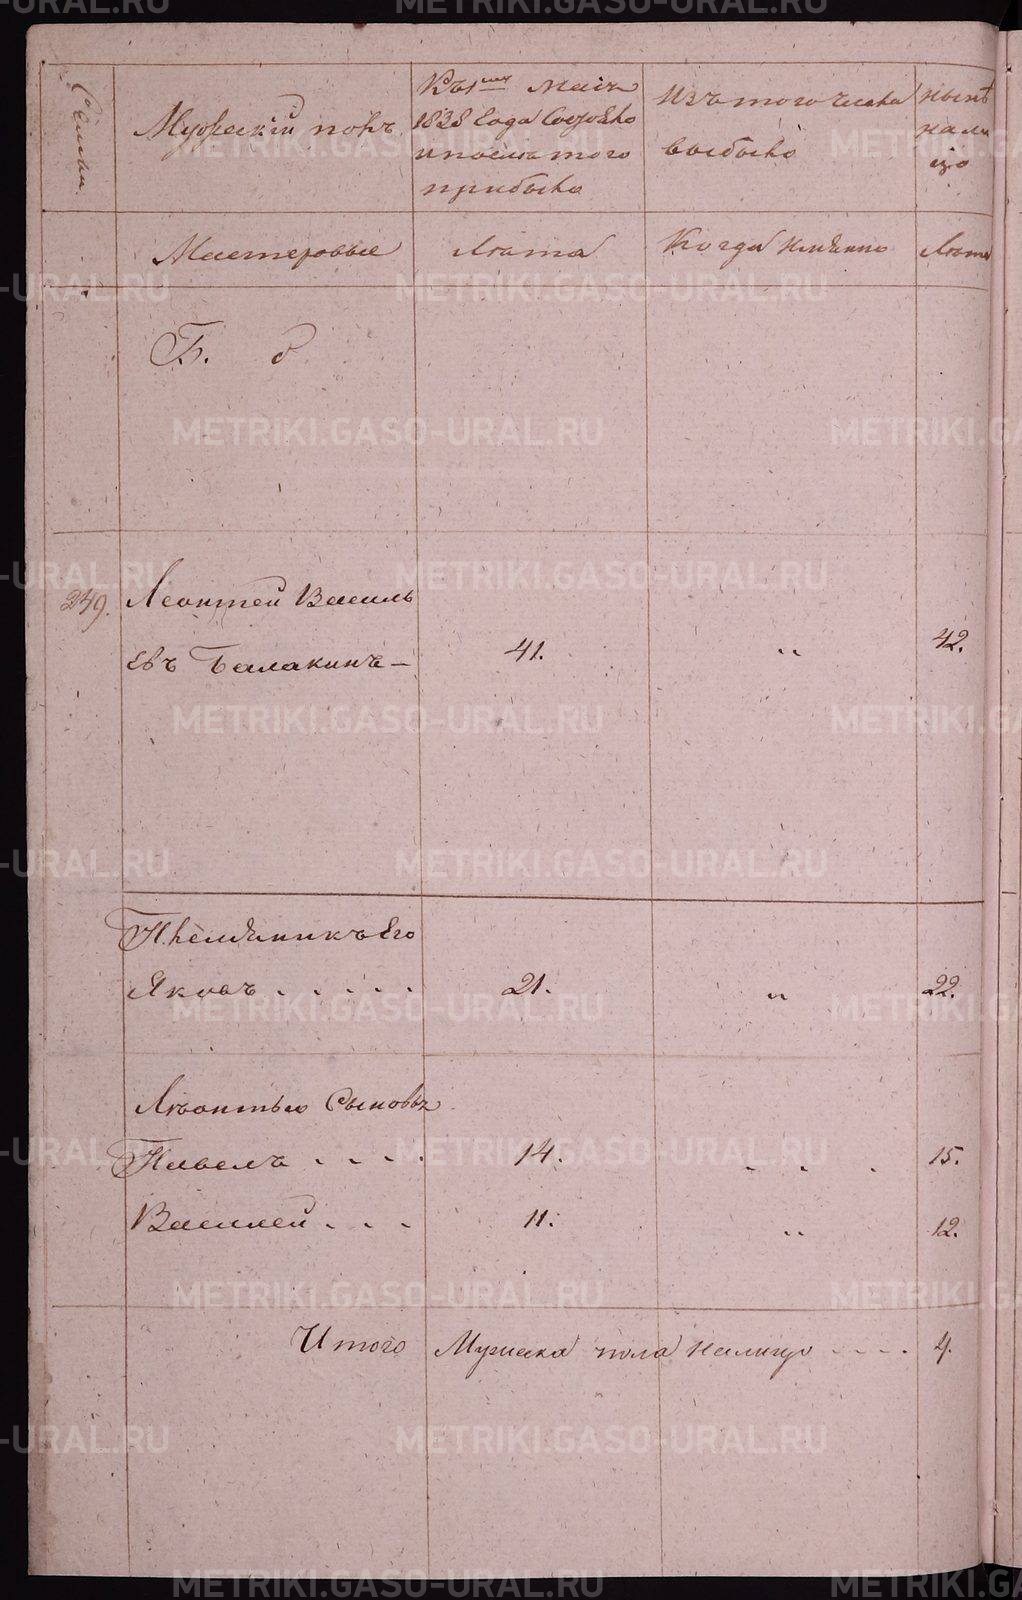 Семьи.
Мужескій полъ
Къ 1му Маія
1838 Года Состояло
и после того
прибыло
Изъ того числа
выбыло
ныне
нали
цо
Мастеровые
Лета
Когда имянно
Лета
Б.
249.
Леонтей Василь
евъ Балакинъ —
41.
„
42.
Племянникъ Его
Яковъ . . . . .
21.
„
22.
Леонтью Сыновья
Павелъ . . . .
14.
. . .
15.
Василей . . .
11.
„
12.
Итого Мужска пола налицо . . . . 4.
METRIKI.GASO-URAL.RU